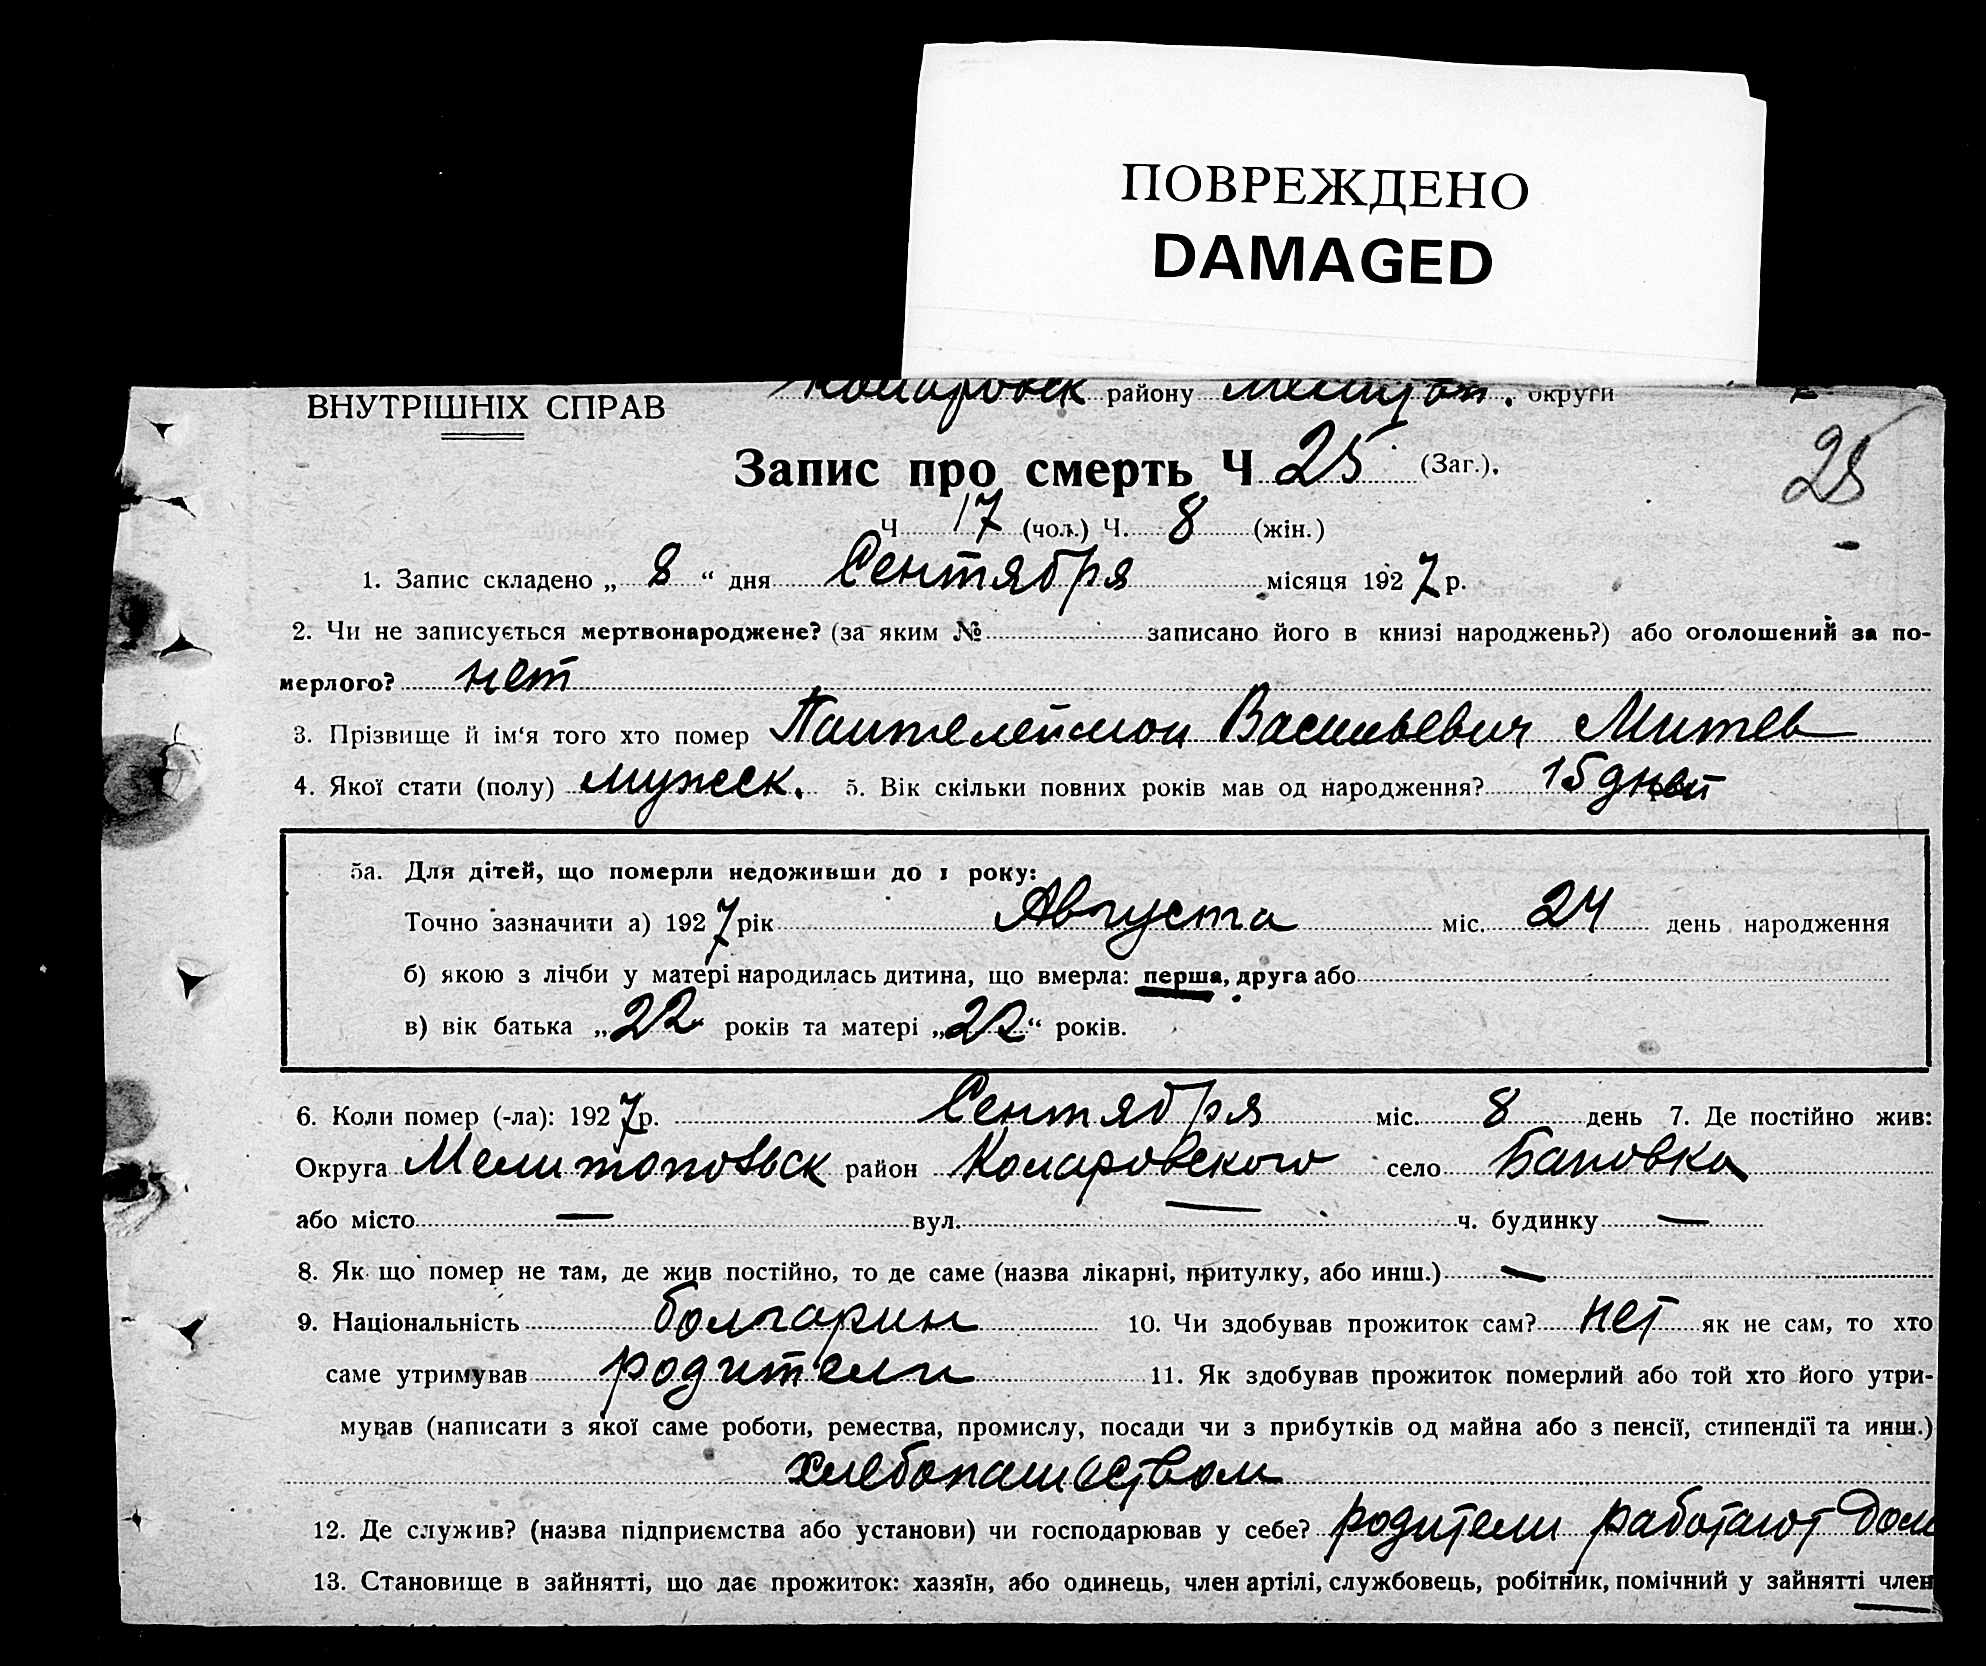 ПОВРЕЖДЕНО
DAMAGED
ВНУТРІШНІХ СПРАВ
Коларовск району Мелитоп. округи
Запис про смерть Ч 25 (Заг.).
25
Ч 17 (чол.) Ч. 8 (жін.)
1. Запис складено „ 8 “ дня Сентября місяця 1927 р.
2. Чи не записується мертвонароджене? (за яким № записано його в книзі народжень?) або оголошений за по-
мерлого? нет
3. Прізвище й ім‘я того хто помер Пантелеймон Васильевич Митев
4. Якої стати (полу) мужеск. 5. Вік скільки повних років мав од народження? 15 дней
5а. Для дітей, що померли недоживши до 1 року:
Точно зазначити а) 1927 рік Августа міс. 24 день народження
б) якою з лічби у матері народилась дитина, що вмерла: перша, друга або
в) вік батька „22 років та матері „22“ років.
6. Коли помер (-ла): 1927 р. Сентября міс. 8 день 7. Де постійно жив:
Округа Мелитопольск район Коларовского село Бановка
або місто — вул. — ч. будинку —
8. Як що помер не там, де жив постійно, то де саме (назва лікарні, притулку, або инш.) —
9. Національність болгарин 10. Чи здобував прожиток сам? нет як не сам, то хто
саме утримував родители 11. Як здобував прожиток померлий або той хто його утри-
мував (написати з якої саме роботи, ремества, промислу, посади чи з прибутків од майна або з пенсії, стипендії та инш.)
хлебопашеством
12. Де служив? (назва підприємства або установи) чи господарював у себе? родители работают дом
13. Становище в зайнятті, що дає прожиток: хазяїн, або одинець, член артілі, службовець, робітник, помічний у зайнятті член